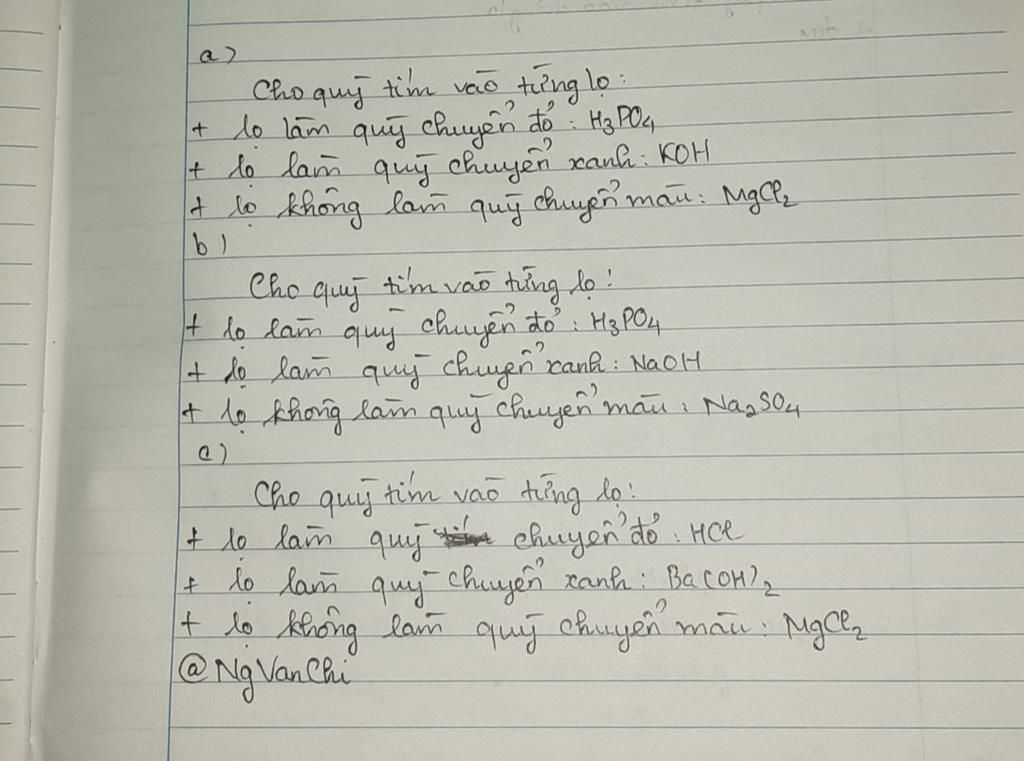 a)
Cho quỳ tím vào từng lọ:
+ lọ làm quỳ chuyển đỏ : H₃PO₄
+ lọ làm quỳ chuyển xanh : KOH
+ lọ không làm quỳ chuyển màu : MgCl₂
b)
Cho quỳ tím vào từng lọ :
+ lọ làm quỳ chuyển đỏ : H₃PO₄
+ lọ làm quỳ chuyển xanh : NaOH
+ lọ không làm quỳ chuyển màu : Na₂SO₄
c)
Cho quỳ tím vào từng lọ :
+ lọ làm quỳ chuyển đỏ : HCl
+ lọ làm quỳ chuyển xanh : Ba(OH)₂
+ lọ không làm quỳ chuyển màu : MgCl₂
@NgVanChi